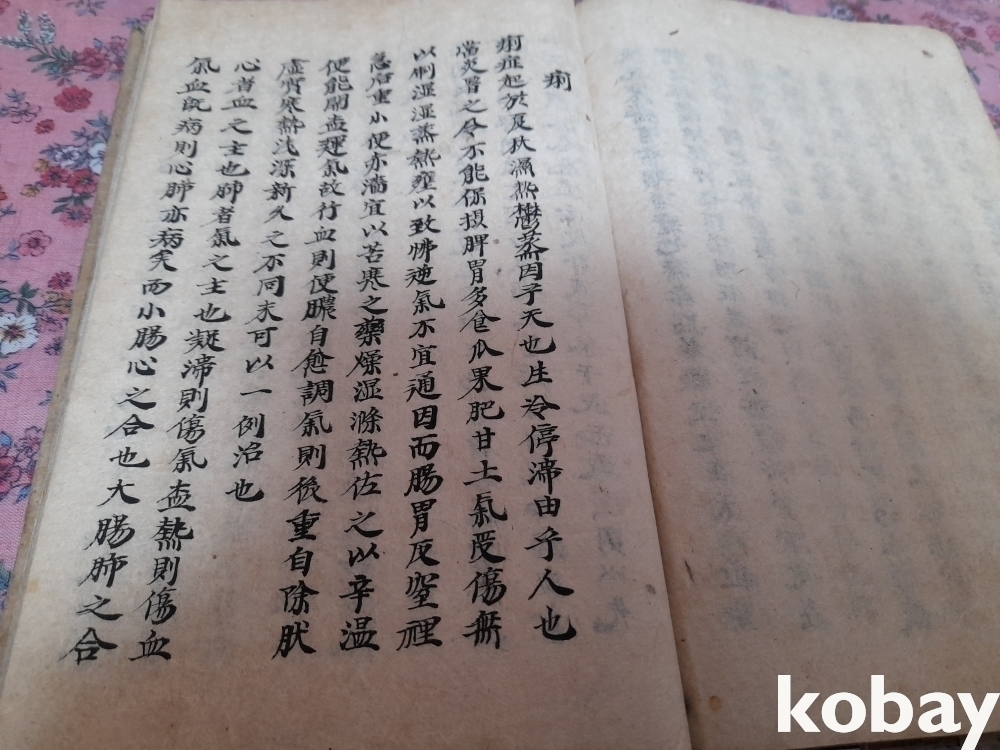 痢
痢症起於夏秋濕熱鬱蒸因乎天也生冷停滯由乎人也
當炎暑之令不能保攝脾胃多食瓜果肥甘土氣受傷無
以制湿湿蒸熱壅以致怫逆氣不宜通因而腸胃反窒裡
急后重小便亦濇宜以苦寒之藥燥湿滌熱佐之以辛温
便能開盍運氣故行血則便膿自愈調氣則後重自除然
虛實寒熱浅深新久之不同未可以一例治也
心者血之主也肺者氣之主也凝滯則傷氣盍熱則傷血
氣血既病則心肺亦病矣而小腸心之合也大腸肺之合
kobay